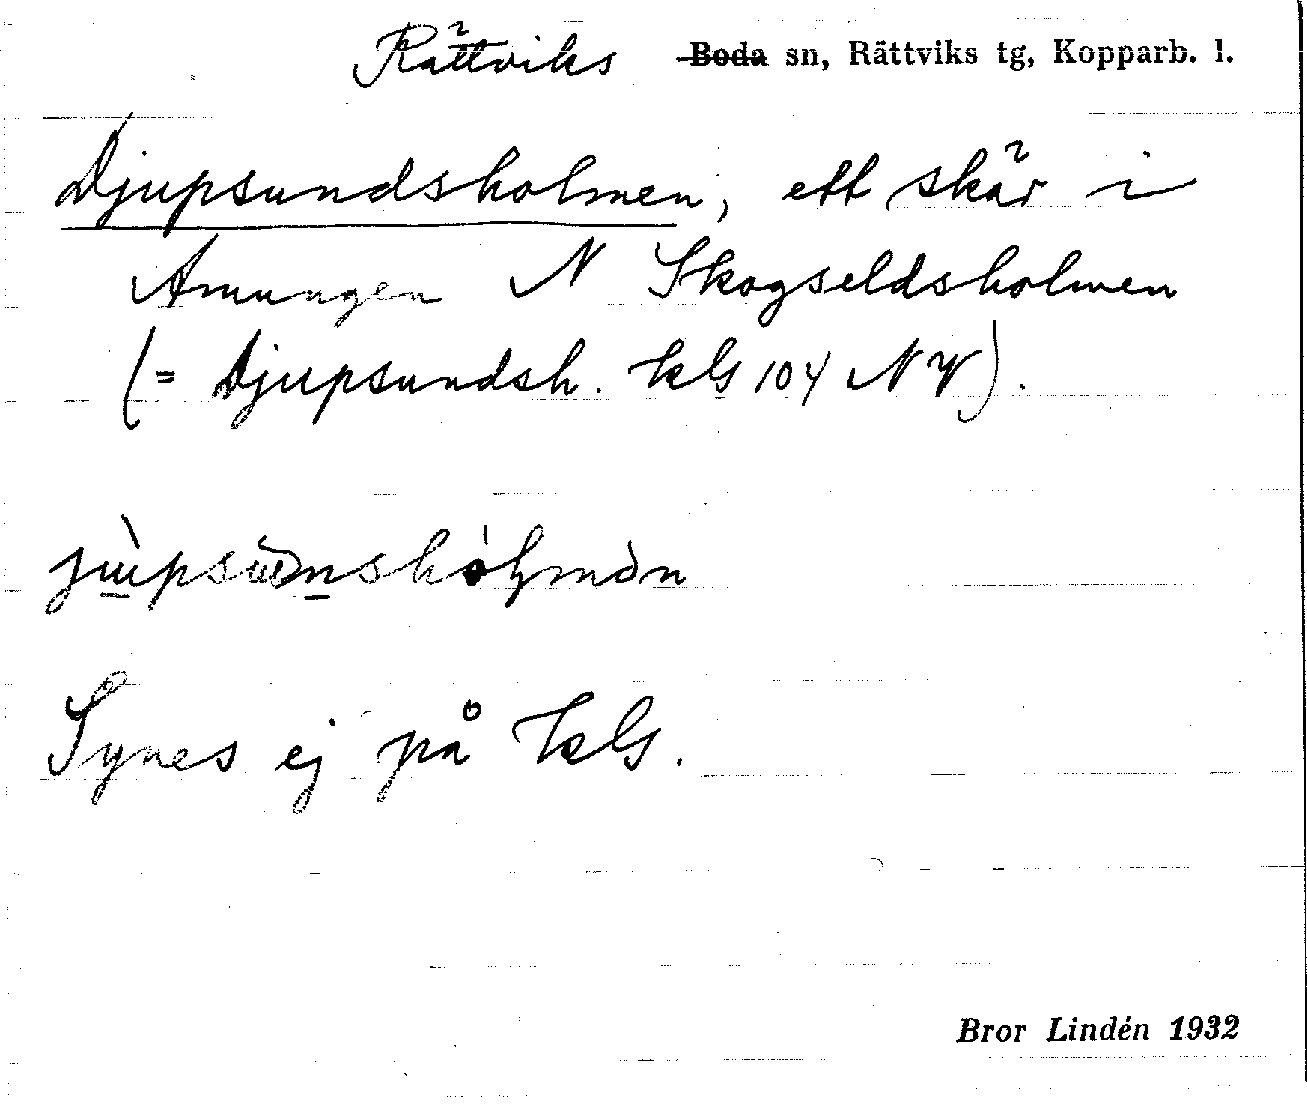 Rättviks Boda sn, Rättviks tg, Kopparb. l.
Djupsundsholmen, ett skär i
Amungen N Skogseldsholmen
(= Djupsundsh. kbl 104 NV).
Synes ej på kbl.
Bror Lindén 1932